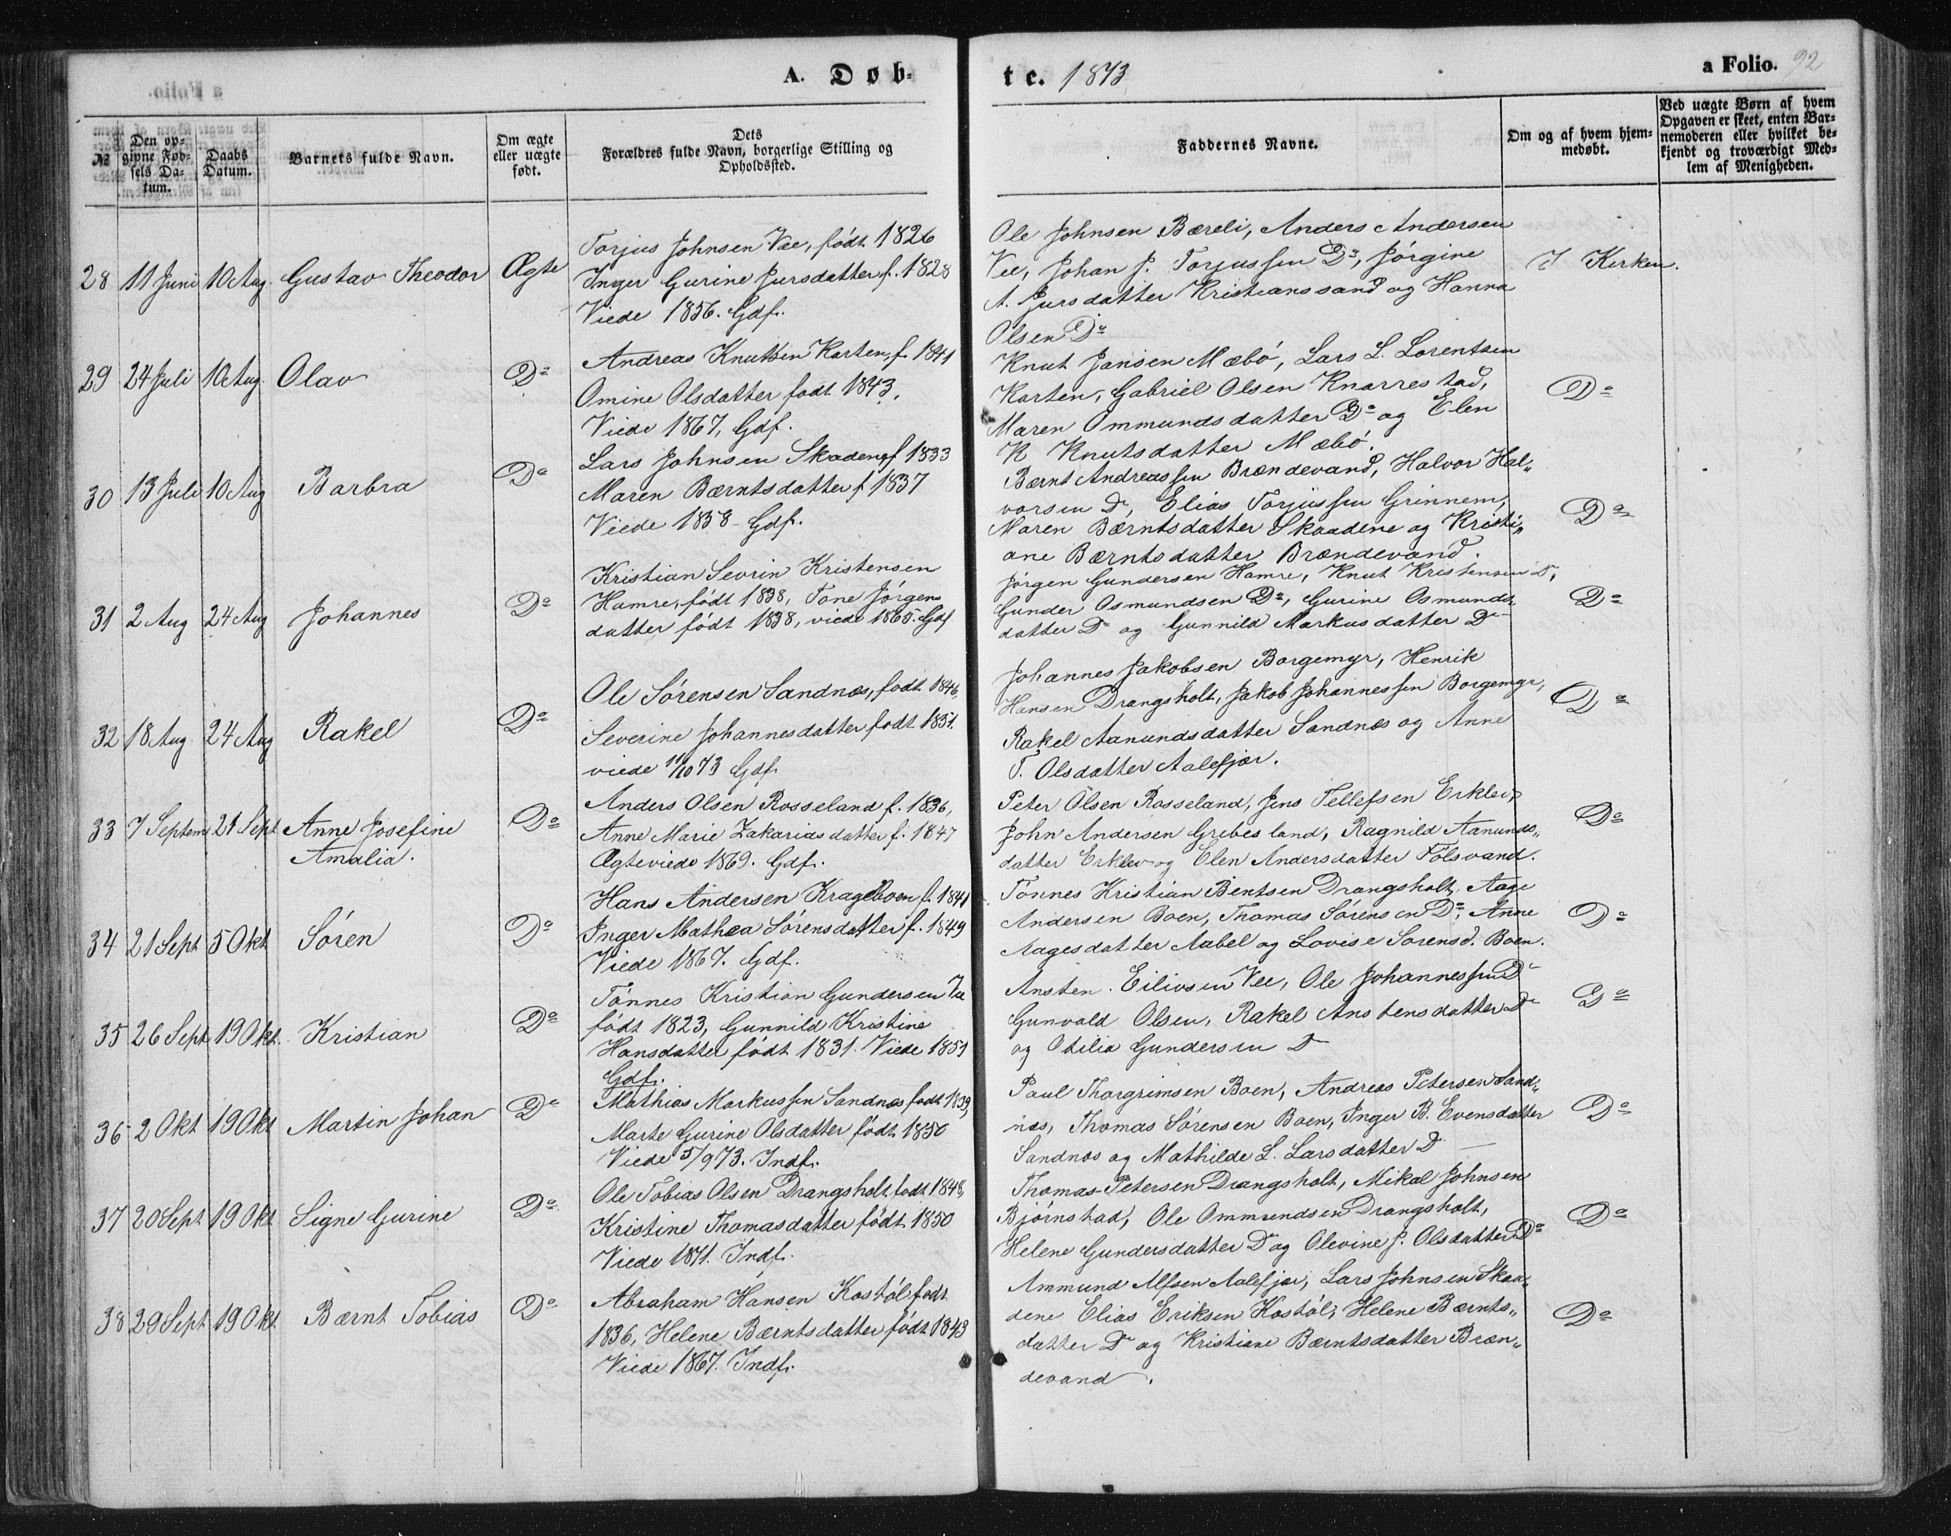 A. Døb-
te. 1873
a Folio. 92
№
Den op-
givne Fød-
sels Da-
tum.
Daabs
Datum.
Barnets fulde Navn.
Om ægte
eller uægte
født.
Dets
Forældres fulde Navn, borgerlige Stilling og
Opholdssted.
Faddernes Navne.
Om og af hvem hjem-
medøbt.
Ved uægte Børn af hvem
Opgaven er skeet, enten Bar-
nemoderen eller hvilket be-
kjendt og troværdigt Med-
lem af Menigheden.
28 11 Juni 10 Aug. Gustav Theodor Ægte
Torjus Johnsen Vee, født 1826
Inger Gurine Jursdatter f. 1828
Viede 1856. Gdf.
Ole Johnsen Bæreli, Anders Andersen
Vee, Johan J. Torjussen Do, Jørgine
A. Jursdatter Kristianssand og Hanna
Olsen Do
I Kirken.
29 24 Juli 10 Aug. Olav Do
Andreas Knutsen Karten, f. 1841
Omine Olsdatter født 1843.
Viede 1867, Gdf.
Knut Jansen Mæbø, Lars L. Lorentsen
Karten, Gabriel Olsen Knarrestad,
Maren Ommundsdatter Do og Elen
K Knutsdatter Mæbø.
Do
30 13 Juli 10 Aug Barbra Do
Lars Johnsen Skaadene f 1833
Maren Bærntsdatter f 1837
Viede 1858 Gdf.
Bærnt Andreassen Brændevand, Halvor Hal-
vorsen Do, Elias Torjussen Grinnem,
Maren Bærntsdatter Skaadene og Kristi-
ane Bærntsdatter Brændevand.
Do
31 2 Aug 24 Aug Johannes Do
Kristian Sevrin Kristensen
Hamre, født 1838, Tone Jørgens
datter født 1838, viede 1865. Gdf
Jørgen Gundersen Hamre, Knut Kristensen Do,
Gunder Osmundsen Do, Gurine Osmunds-
datter Do og Gunnild Markusdatter Do
Do
32 18 Aug. 24 Aug Rakel Do
Ole Sørensen Sandnæs, født 1846,
Severine Johannesdatter født 1851.
viede 19/10 73 Gdf.
Johannes Jakobsen Borgemyr, Henrik
Hansen Drangsholt, Jakob Johannessen Borgemyr,
Rakel Aanundsdatter Sandnæs og Anne
T. Olsdatter Aalefjær.
Do
33 7 Septem 21 Sept Anne Josefine
Amalia. Do
Anders Olsen Rosseland f. 1836,
Anne Marie Zakariasdatter f. 1847
Ægteviede 1869. Gdf.
Peter Olsen Rosseland, Jens Tellefsen Erklev,
John Andersen Gribesland, Ragnild Aanunds-
datter Erklev og Elen Andersdatter Fölsvand.
Do
34 21 Sept 5 Okt Søren Do
Hans Andersen Krageboen f. 1841
Inger Mathea Sørensdatter f. 1849
Viede 1867. Gdf.
Tønnes Kristian Bentsen Drangsholt, Aage
Andersen Boen, Thomas Sørensen Do, Anne
Aagesdatter Aabel og Lovise Sørensd. Boen.
Do
35 26 Sept 19 Okt. Kristian Do
Tønnes Kristian Gundersen Vee
født 1823, Gunnild Kristine
Hansdatter født 1831. Viede 1851
Gdf.
Ansten Eilivsen Vee, Ole Johannessen Do
Gunvald Olsen, Rakel Anstensdatter Do
og Otilia Gundersen Do
Do
36 2 Okt 19 Okt Martin Johan Do
Mathias Markussen Sandnæs født 1839,
Marte Gurine Olsdatter født 1850
Viede 5/9 73. Indf.
Paul Thorgrimsen Boen, Andreas Petersen Sand-
næs, Thomas Sørensen Boen, Inger B. Evensdatter
Sandnæs og Mathilde L. Larsdatter Do
Do
37 20 Sept 19 Okt Signe Gurine Do
Ole Tobias Olsen Drangsholt født 1848,
Kristine Thomasdatter født 1850
Viede 1871. Indf.
Thomas Petersen Drangsholt, Mikal Johnsen
Bjørnstad, Ole Ommundsen Drangsholt,
Helene Gundersdatter Do og Olevine J. Olsdatter Do
Do
38 29 Sept 19 Okt. Bærnt Tobias Do
Abraham Hansen Kostøl født
1836, Helene Bærntsdatter født 1843
Viede 1867. Indf.
Ammund Alfsen Aalefjær, Lars Johnsen Skaa-
dene Elias Eriksen Kostøl, Helene Bærnts-
datter Do og Kristiane Bærntsdatter Bræn-
devand.
Do